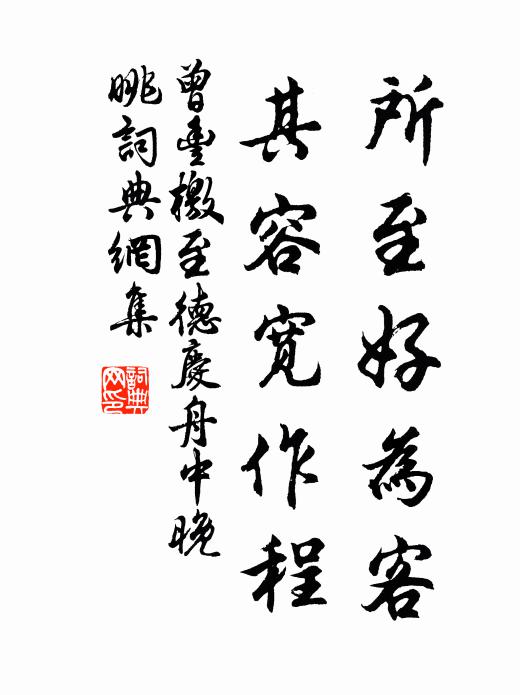 所至好為客
其容寬作程
曾豐檄至德慶舟中晚
眺詞典網集
詞典網印